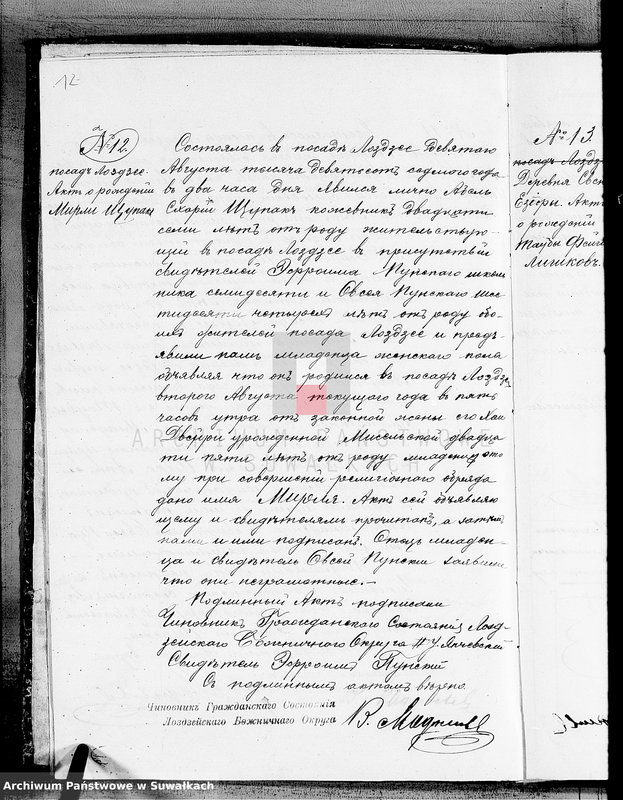 12
№ 12
посадъ Лоздзее
Актъ о рожденіи
Мирли Щупакъ
Состоялась въ посадѣ Лоздзее Девятаго
Августа тысяча девятсотъ седьмого года
въ два часа дня явился лично Абель
Щупакъ кожевникъ двадцати
семи лѣтъ отъ роду жительствую-
щій въ посадѣ Лоздзее въ присутствіи
свидѣтелей Эфроима Пунскаго
семидесяти и Овсея Пунскаго шес-
тидесяти четырехъ лѣтъ отъ роду обо-
ихъ жителей посада Лоздзее и предъ-
явилъ намъ младенца женскаго пола
объявляя что онъ родился въ посадѣ Лоздзее
второго Августа текущаго года въ пять
часовъ утра отъ законной жены его Хаи
Двейри урожденной двадца-
ти пяти лѣтъ отъ роду младенцу это
му при совершеніи религіознаго обряда
дано имя Мирля. Актъ сей объявляю
щему и свидѣтелямъ прочитанъ, а затѣмъ
нами и ими подписанъ. Отецъ младен-
ца и свидѣтель Овсей Пунски заявили
что они неграмотные.-
Подлинный Актъ подписали
Чиновникъ Гражданскаго Состоянія Лозд-
зейскаго Божничнаго Округа
Свидѣтель Эфроимъ Пунскій
Съ подлиннымъ актомъ вѣрно
Чиновникъ Гражданскаго Состоянія
Лоздзейскаго Божничнаго Округа
№ 13
посадъ Лоздз
Деревня
Езёры. Актъ
о рожденіи
Тауби
ARCHIWUM PAŃSTWOWE
W SUWAŁKACH
Archiwum Państwowe w Suwałkach